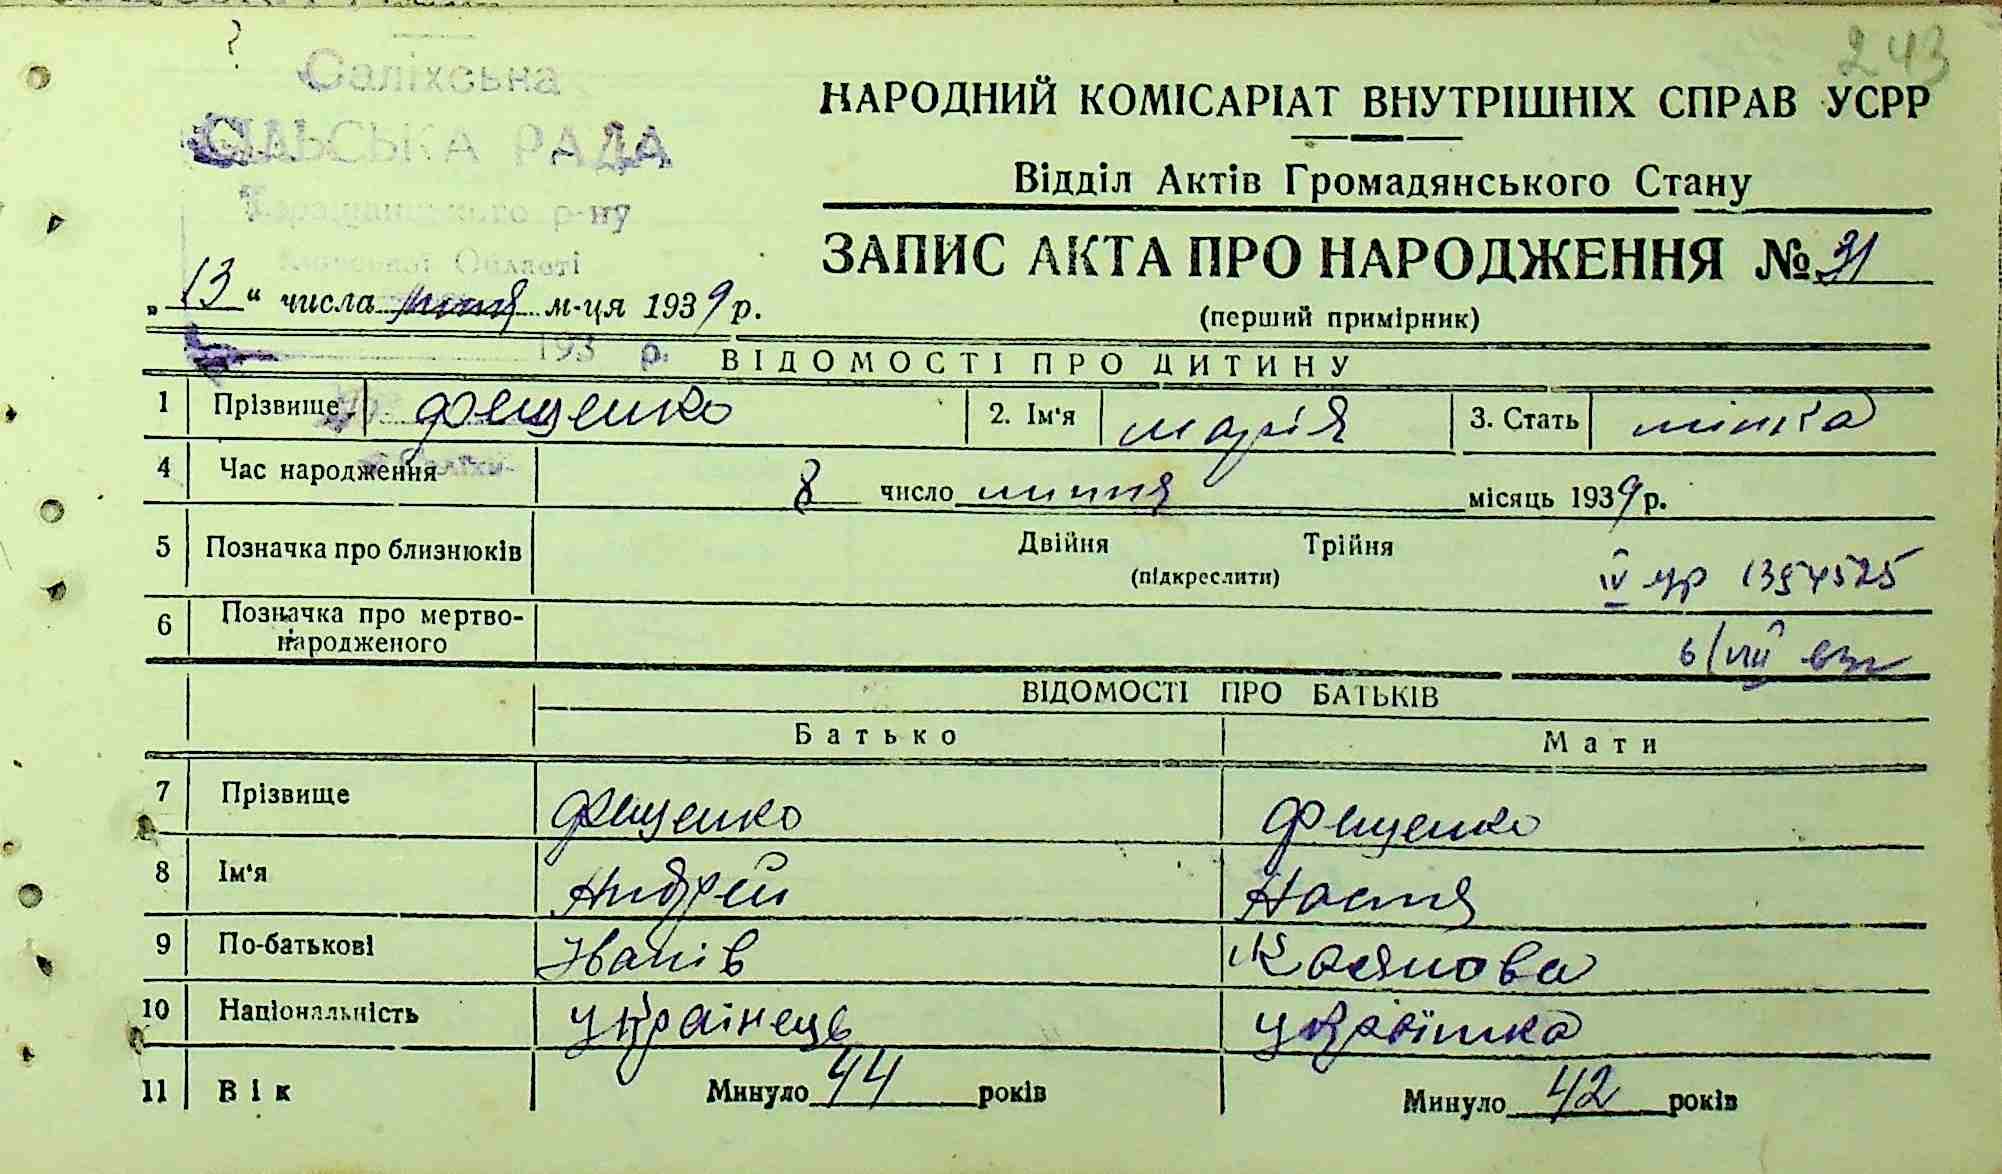 243
Саліхська
СІЛЬСЬКА РАДА
Таращанського р-ну
Київської Області
193 р.
НАРОДНИЙ КОМІСАРІАТ ВНУТРІШНІХ СПРАВ УСРР
Відділ Актів Громадянського Стану
ЗАПИС АКТА ПРО НАРОДЖЕННЯ № 31
(перший примірник)
„13“ числа липня м-ця 1939 р.
ВІДОМОСТІ ПРО ДИТИНУ
1 Прізвище Фещенко 2. Ім'я Марія 3. Стать жінка
4 Час народження 8 число липня місяць 1939 р.
5 Позначка про близнюків Двійня Трійня
(підкреслити)
6 Позначка про мертво-
народженого
ВІДОМОСТІ ПРО БАТЬКІВ
Батько Мати
7 Прізвище Фещенко Фещенко
8 Ім'я Андрей Настя
9 По-батькові Іванів Касянова
10 Національність українець українка
11 Вік Минуло 44 років Минуло 42 років